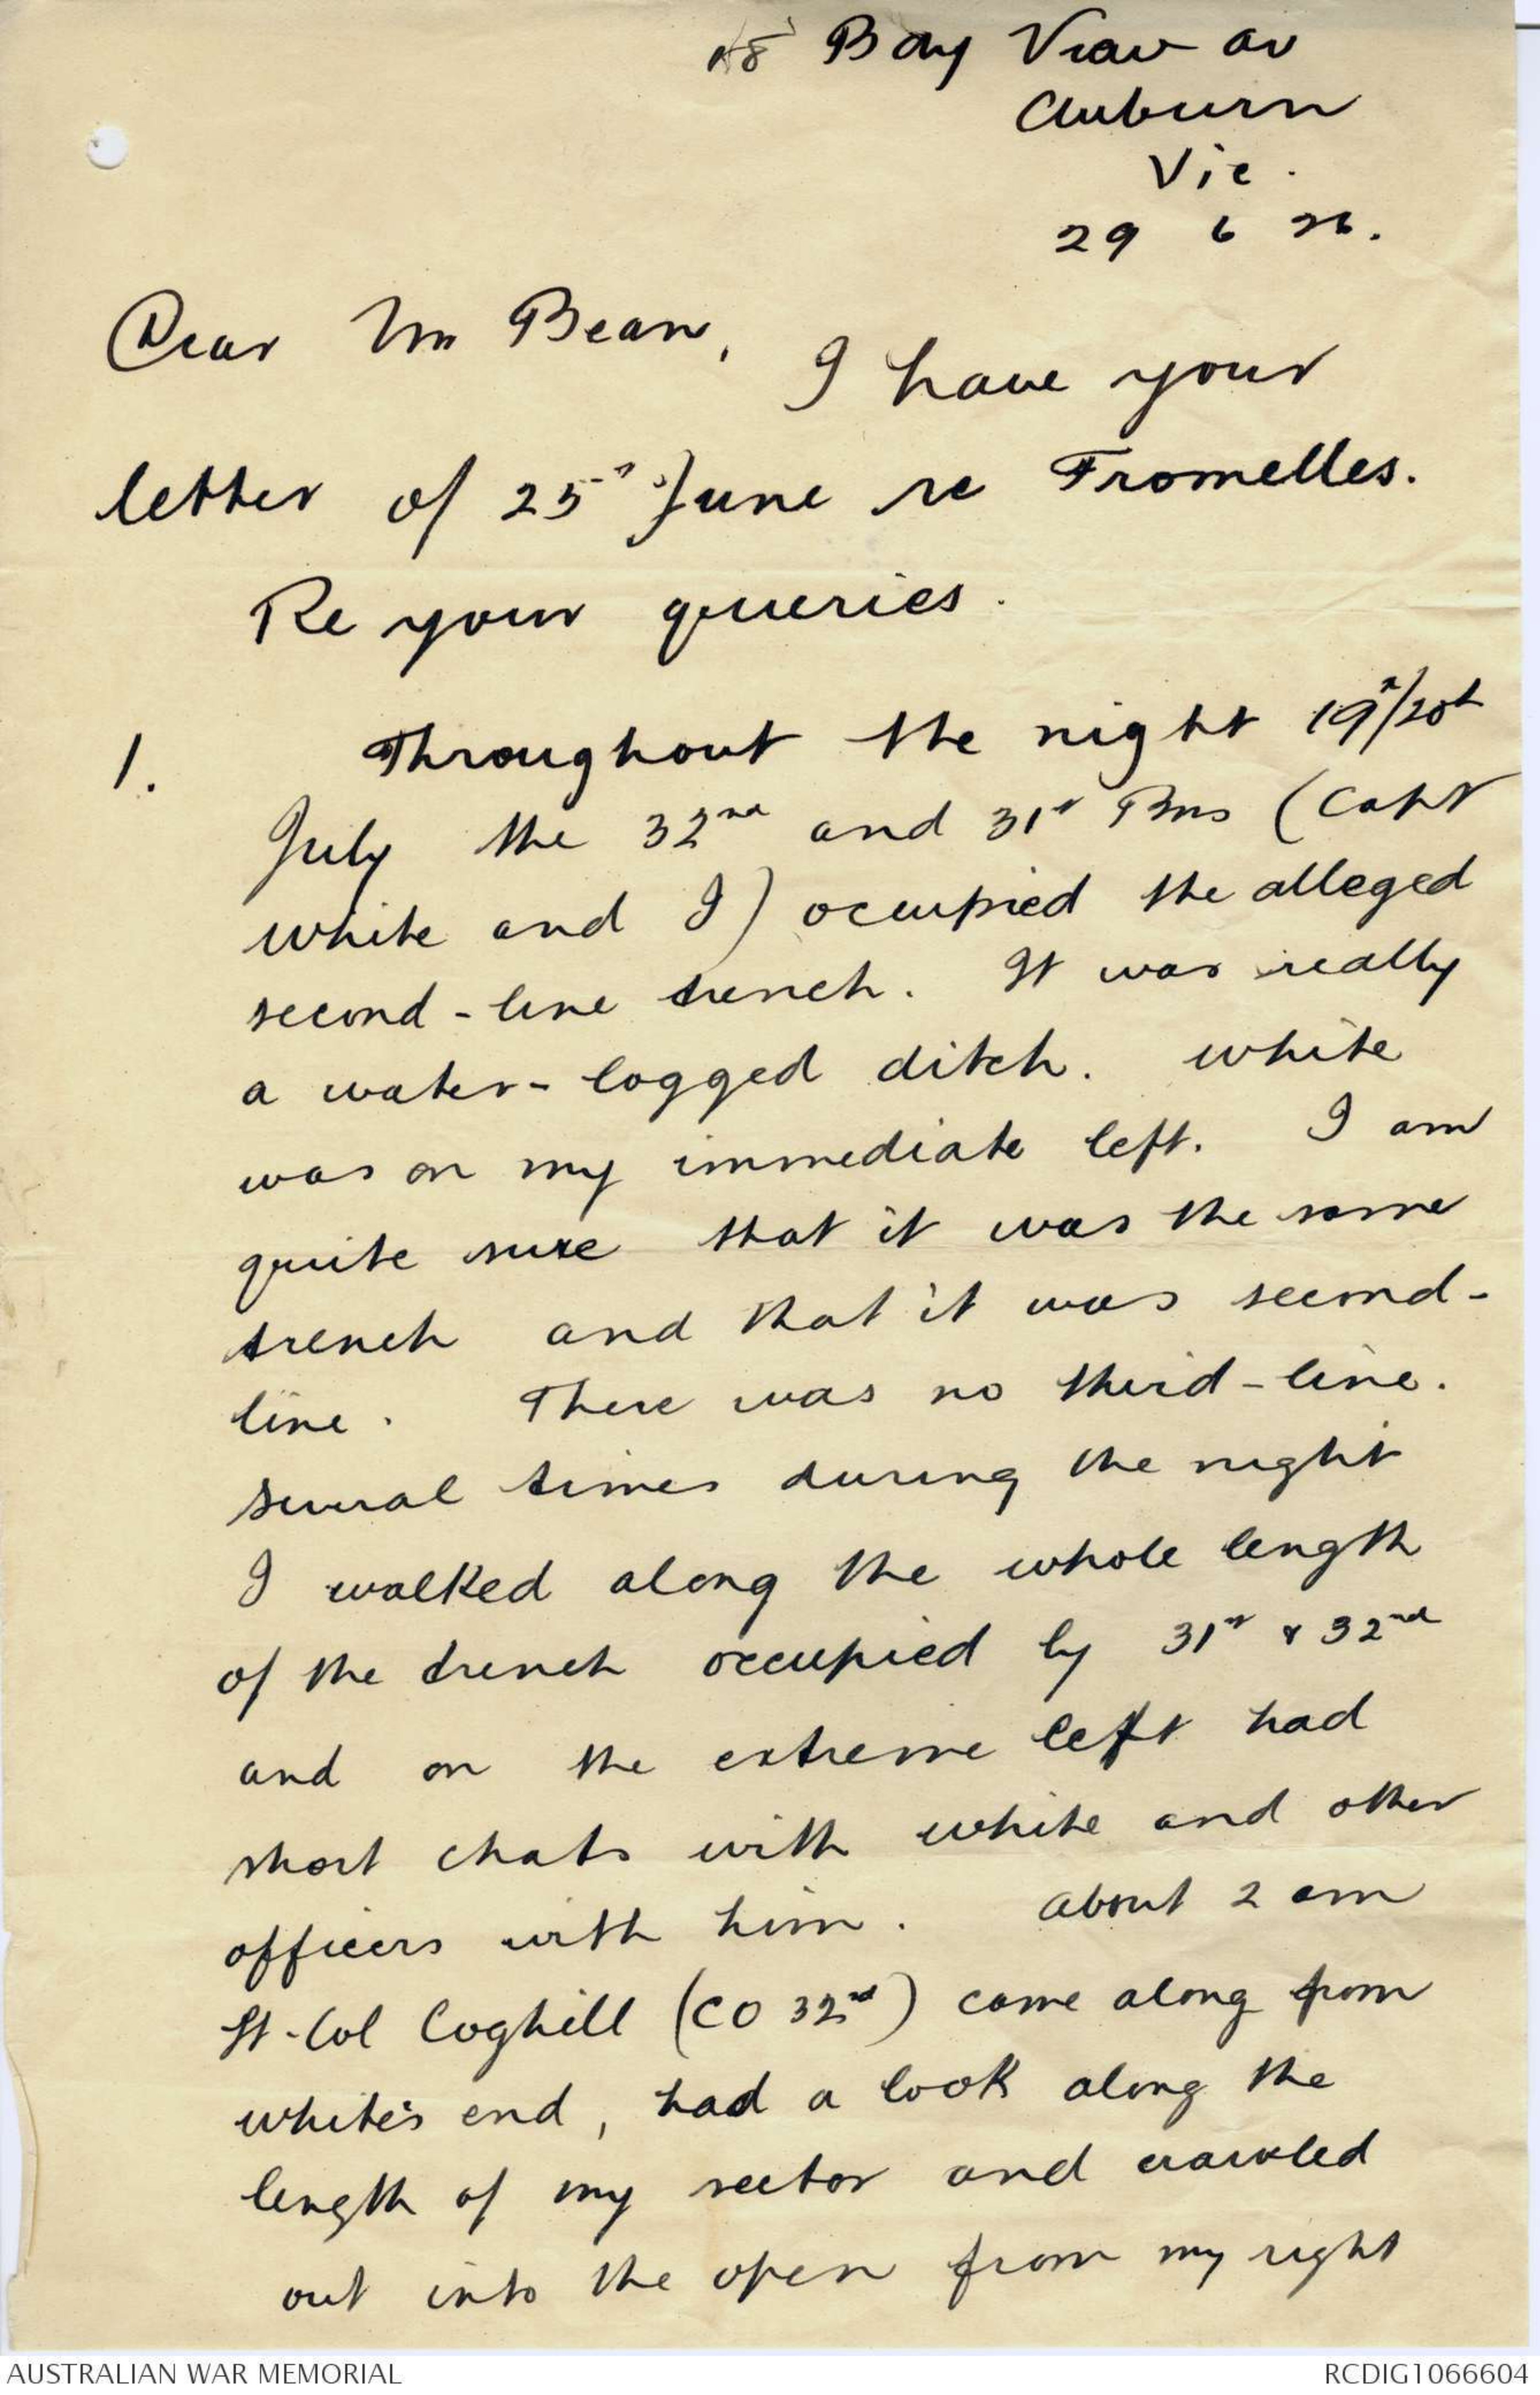 Bay View av
Auburn
Vic.
29 6 26.
Dear Mr Bean,
I have your
letter of 25th June re Fromelles.
Re your queries.
1. Throughout the night 19th/20th
July the 32nd and 31st Bns (Capt
White and I) occupied the alleged
second-line trench. It was really
a water-logged ditch. White
was on my immediate left. I am
quite sure that it was the same
trench and that it was second-
line. There was no third-line.
Several times during the night
I walked along the whole length
of the trench occupied by 31st & 32nd
and on the extreme left had
short chats with White and other
officers with him. About 2 am
Lt-Col Coghill (CO 32nd) came along from
White's end, had a look along the
length of my sector and crawled
out into the open from my right
AUSTRALIAN WAR MEMORIAL
RCDIG1066604